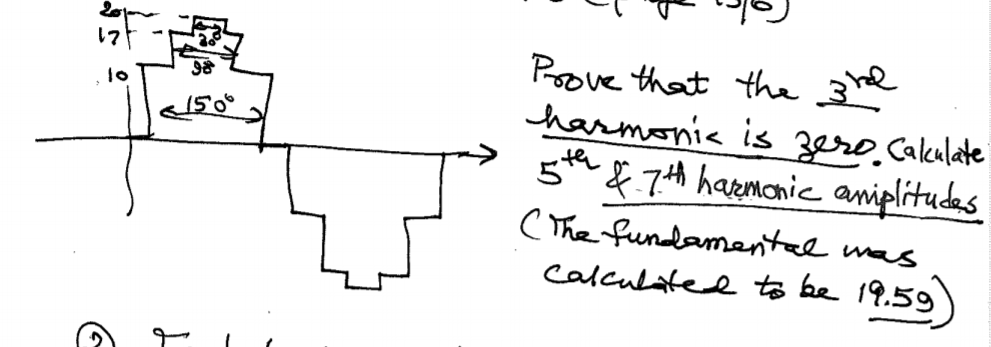 20
17
30°
98
10
150°
Prove that the 3rd
harmonic is zero. Calculate
5th & 7th harmonic amplitudes
(The fundamental was
calculated to be 19.59)